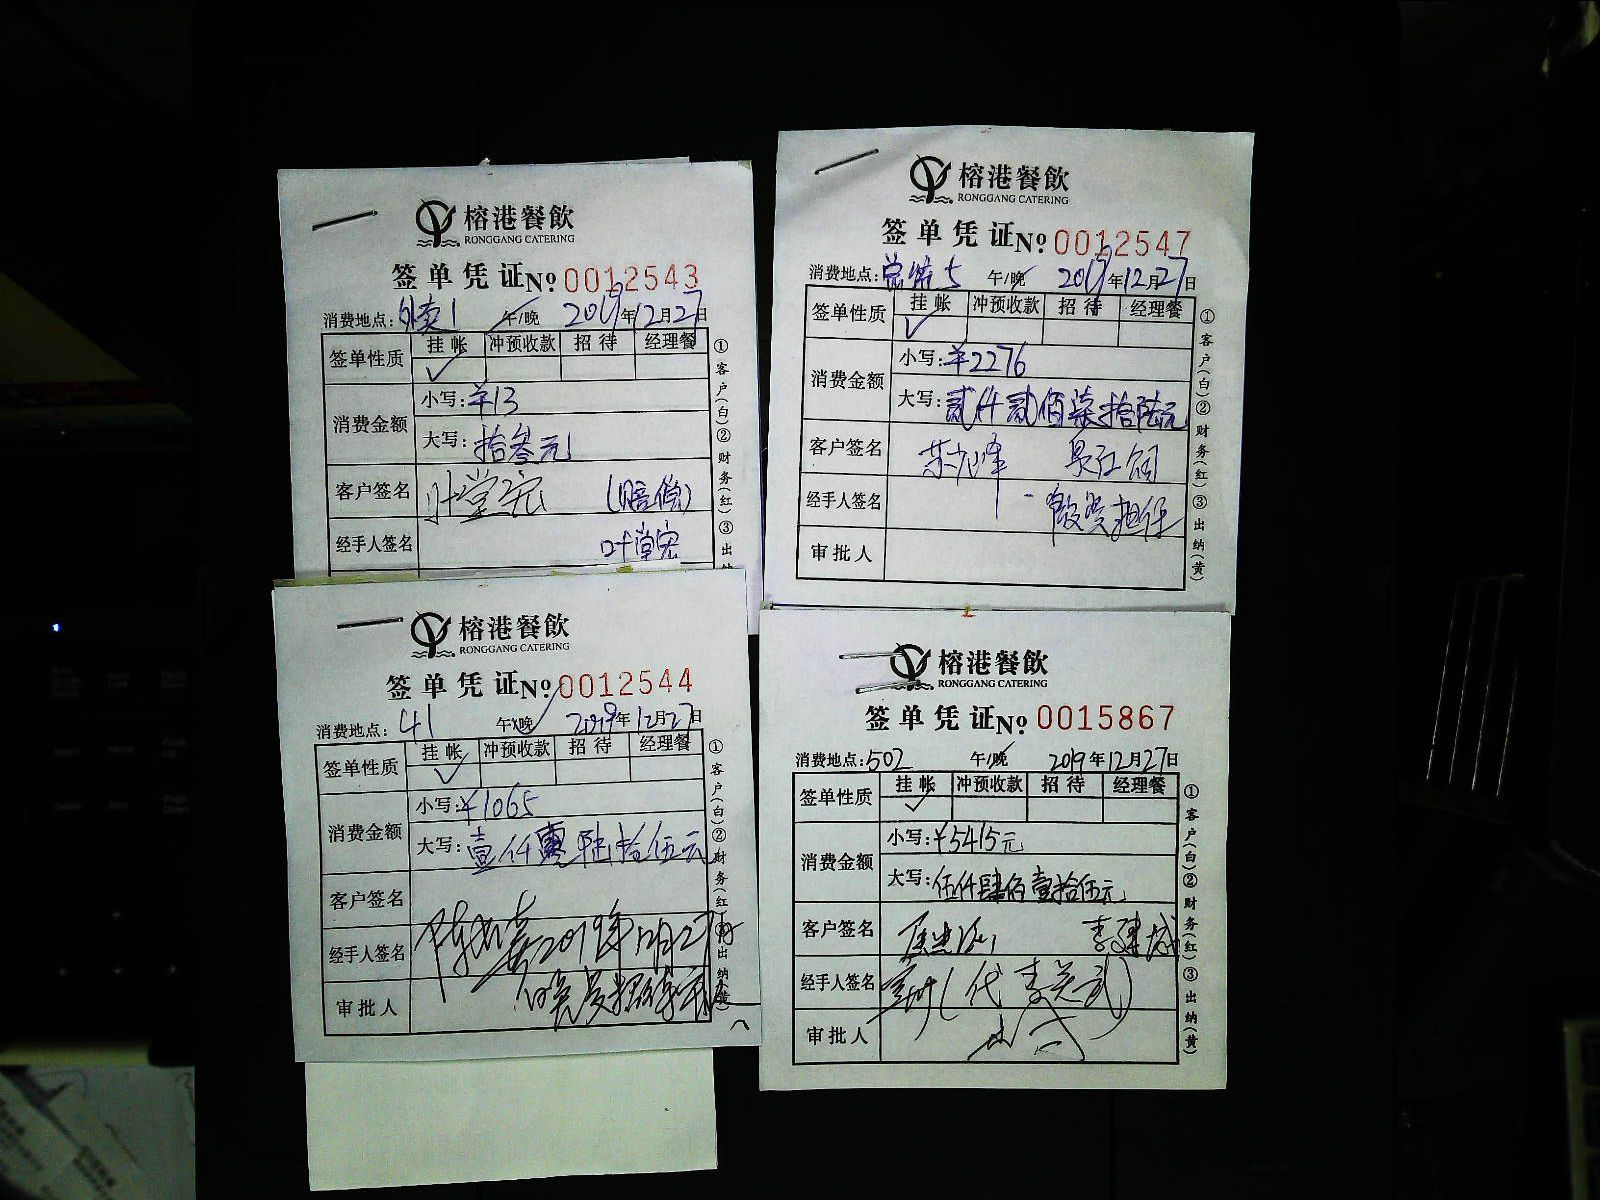 榕港餐飲
RONGGANG CATERING
签单凭证 № 0012543
消费地点：外卖1 午/晚 2019年12月27日
签单性质 挂帐 冲预收款 招待 经理餐
✓
消费金额 小写：¥13
大写：拾叁元
客户签名 叶堂宏 (赔偿)
经手人签名 叶堂宏
①客户(白)②财务(红)③出纳
榕港餐飲
RONGGANG CATERING
签单凭证 № 0012547
消费地点： 午/晚 2019年12月27日
签单性质 挂帐 冲预收款 招待 经理餐
✓
消费金额 小写：¥2276
大写：贰仟贰佰柒拾陆元
客户签名
经手人签名 担任
审批人
①客户(白)②财务(红)③出纳(黄)
榕港餐飲
RONGGANG CATERING
签单凭证 № 0012544
消费地点：41 午/晚 2019年12月27日
签单性质 挂帐 冲预收款 招待 经理餐
✓
消费金额 小写：¥1065
大写：壹仟零陆拾伍元
客户签名
经手人签名 2019年12月27日
审批人
①客户(白)②财务(红)③出纳(黄)
榕港餐飲
RONGGANG CATERING
签单凭证 № 0015867
消费地点：502 午/晚 2019年12月27日
签单性质 挂帐 冲预收款 招待 经理餐
✓
消费金额 小写：¥5415元
大写：伍仟肆佰壹拾伍元
客户签名 李建成
经手人签名 (代李关武)
审批人
①客户(白)②财务(红)③出纳(黄)